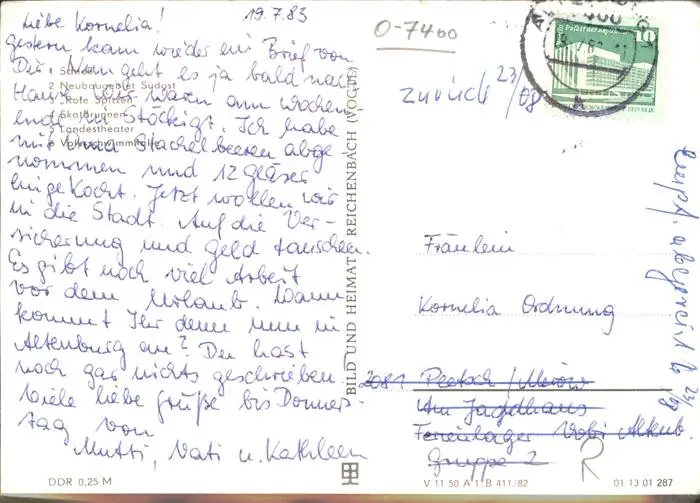 Liebe Kornelia! 19.7.83
gestern kam wieder ein Brief von
Dir. Nun geht es ja bald nach
Haus. Wir waren am Wochen-
ende in Stöckigt. Ich habe
mit Omi Stachelbeeren abge
nommen und 12 Gläser
eingekocht. Jetzt wollen wir
in die Stadt. Auf die Ver-
sicherung und Geld tauschen.
Es gibt noch viel Arbeit
vor dem Urlaub. Wann
kommt Ihr denn nun in
Altenburg an? Du hast
noch gar nichts geschrieben.
Viele liebe Grüße bis Donners-
tag von
Mutti, Vati u. Kathleen
1 Schloß
2 Neubaugebiet Südost
3 Rote Spitzen
4 Skatbrunnen
5 Landestheater
6 Volksschwimmhalle
DDR 0,25 M
BILD UND HEIMAT REICHENBACH (VOGTL)
O-7400
zurück 23/08
Palast der Republik
10
Empf. abgereist
23/08
Fräulein
Kornelia Ordnung
2081 Peetsch / Mirow
Am Jagdhaus
Ferienlager Altenb.
Gruppe 2
R
V 11 50 A 1 B 411/82
01 13 01 287